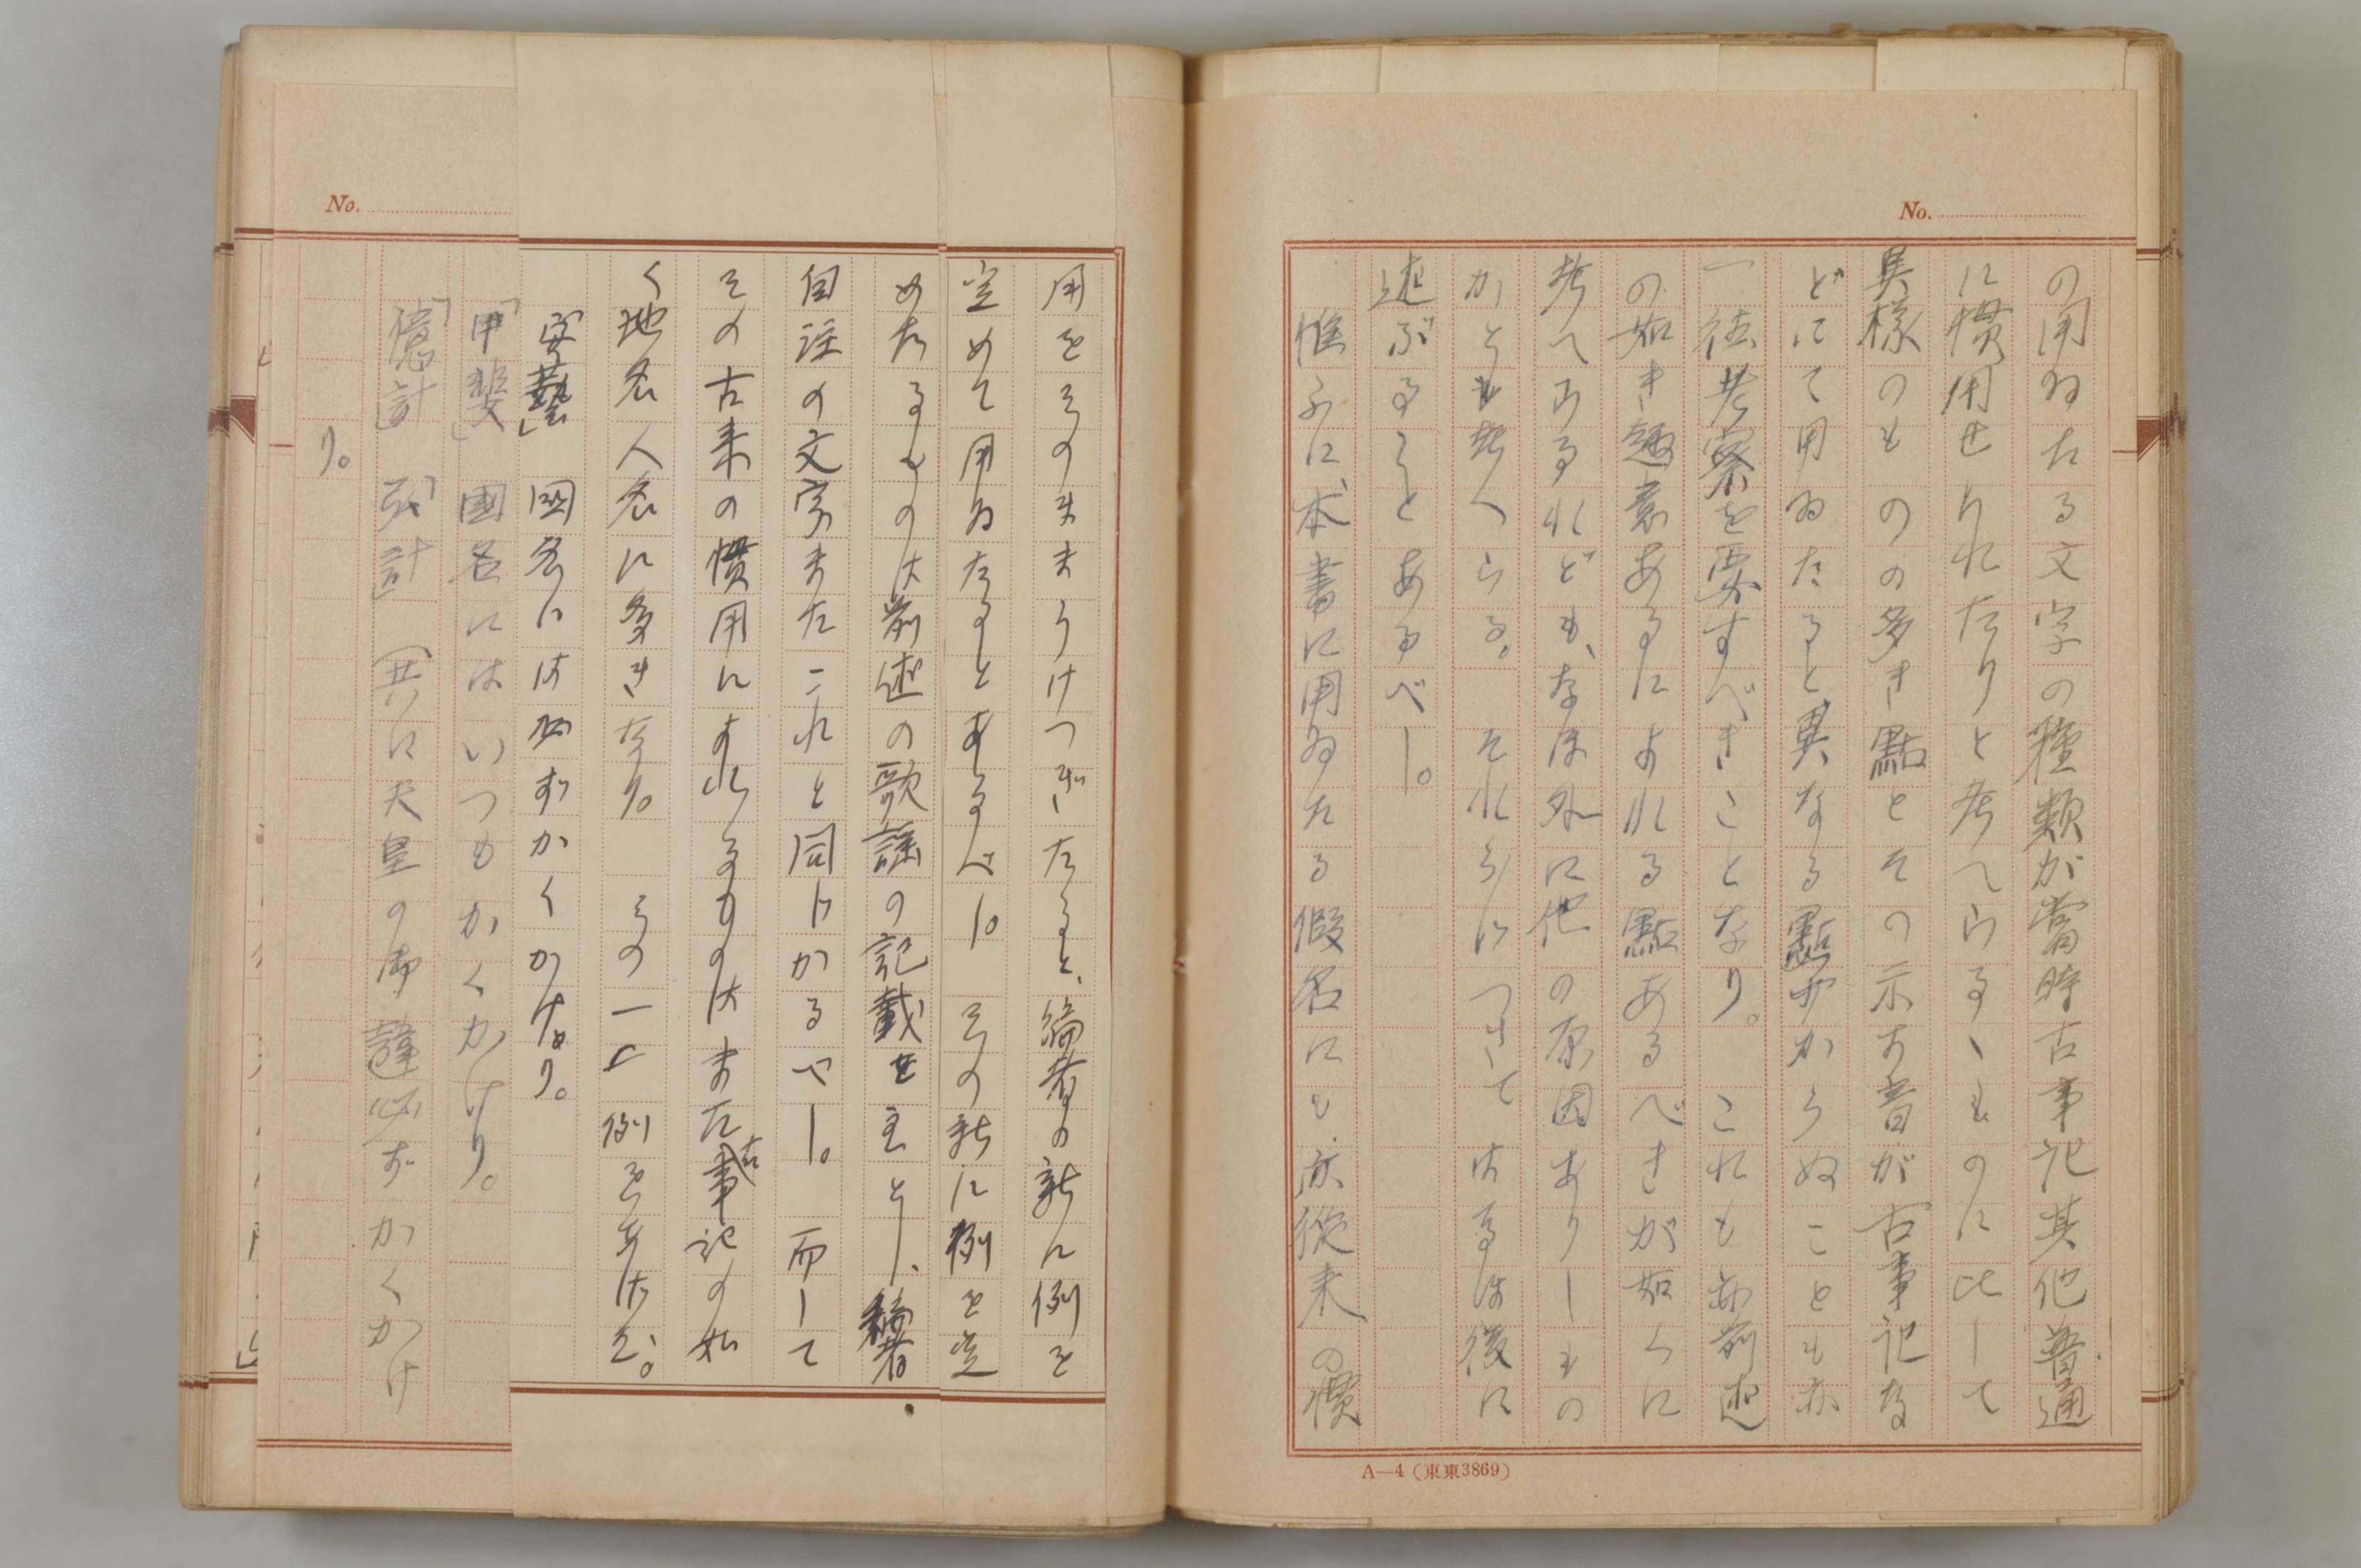 No.
の用ゐたる文字の種類が當時古事記其他普通
に慣用せられたりと考へらるゝものに比して
異様のものの多き點とその示す音が古事記な
どにて用ゐたると異なる點少からぬことも亦
一往考察を要すべきことなり。これも亦前述
の如き趣意あるによれる點あるべきが如くに
考へらるれども、なほ外に他の原因ありしもの
かとも考へらる。それらにつきては等は後に
述ぶることあるべし。
惟ふに、本書に用ゐたる假名にも亦從來の慣
A—4(東東3869)
No.
用をそのまゝうけつぎたると、編者の新に例を
定めて用ゐたるとあるべし。その新に例を定
めたるものは前述の歌謡の記載を主とし、編者
自註の文字またこれと同じかるべし。而して
その古来の慣用によれるものはまた古事記の如
く地名人名に多きなり。その一二例をあげむ。
「安藝」國名には必ずかくかけり。
「甲斐」國名にはいつもかくかけり。
「億計」「弘計」(共に天皇の御諱必ずかくかけ
り。